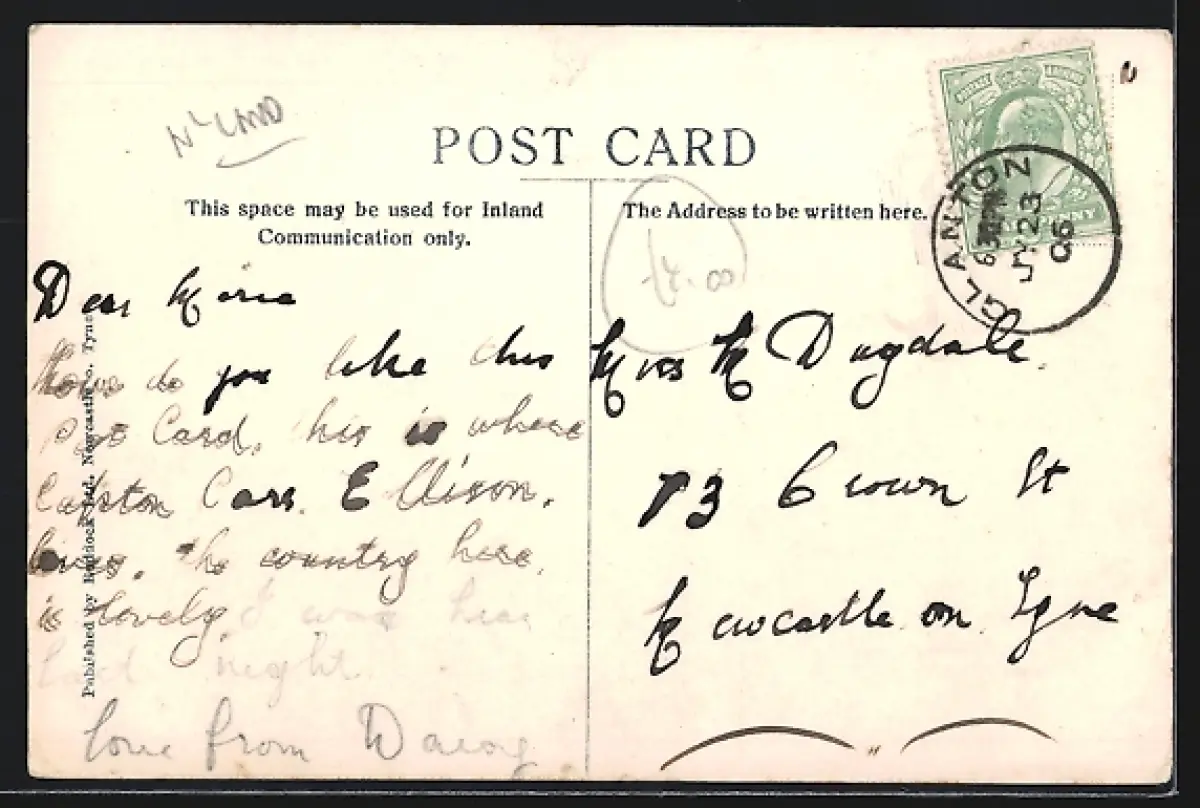 N'LAND
POST CARD
This space may be used for Inland
Communication only.
The Address to be written here.
GLANTON
JY 23
06
£4.00
Dear
How do you like this
Post Card, this is where
Carr Ellison.
lives. the country here
is lovely I was here
last night
love from
Miss M Dugdale.
73 Crown St
Newcastle on Tyne
Published by Ruddock Ltd. Newcastle o. Tyne